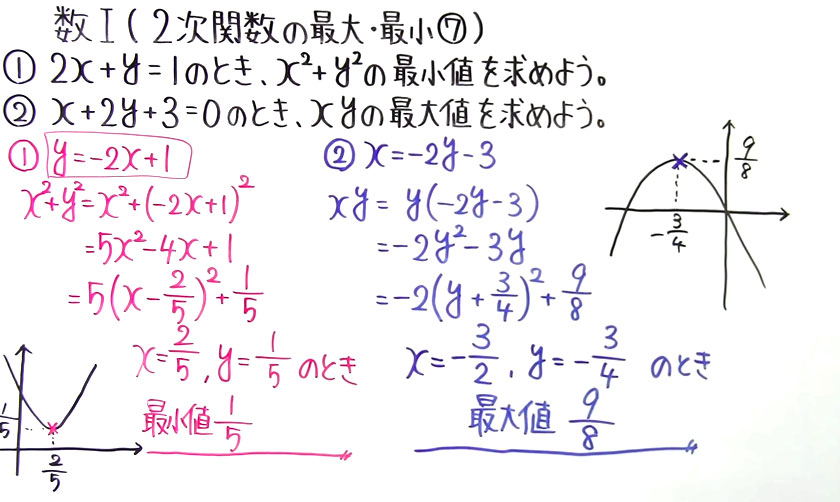 数I(2次関数の最大・最小⑦)
① 2x+y=1のとき、x²+y²の最小値を求めよう。
② x+2y+3=0のとき、xyの最大値を求めよう。
① y=-2x+1
x²+y²=x²+(-2x+1)²
=5x²-4x+1
=5(x-2/5)²+1/5
x=2/5, y=1/5 のとき
最小値 1/5
1/5
2/5
② x=-2y-3
xy=y(-2y-3)
=-2y²-3y
=-2(y+3/4)²+9/8
x=-3/2, y=-3/4 のとき
最大値 9/8
9/8
-3/4